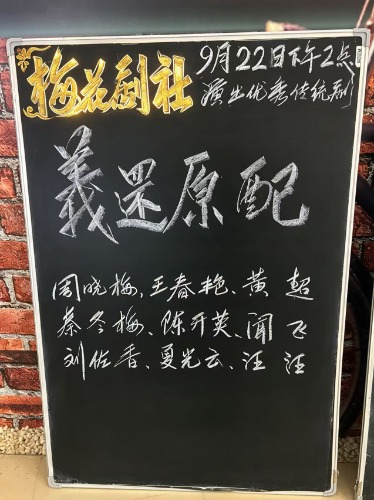 梅花剧社
9月22日下午2点
演出优秀传统剧
義还原配
周晓梅、王春艳、黄超
蔡冬梅、陈开英、闻飞
刘佐香、夏光云、汪汪